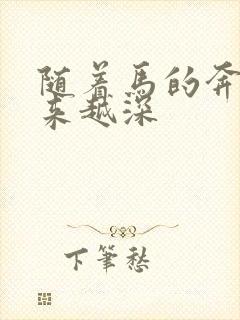 随着马的奔
来越深
下筆愁